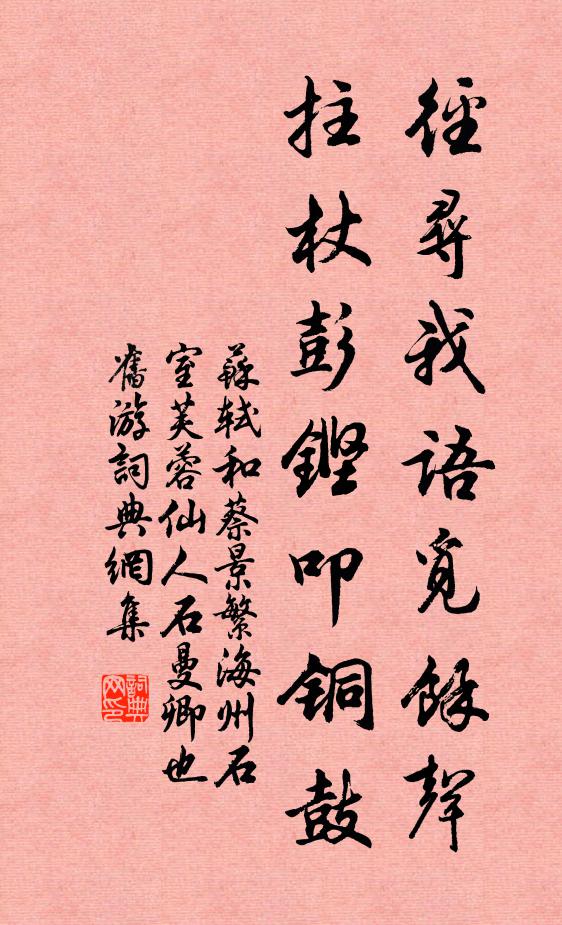 徑尋我語覓餘聲
拄杖彭鏗叩銅鼓
蘇軾和蔡景繁海州石
室芙蓉仙人石曼卿也
舊游詞典網集
詞典
网印